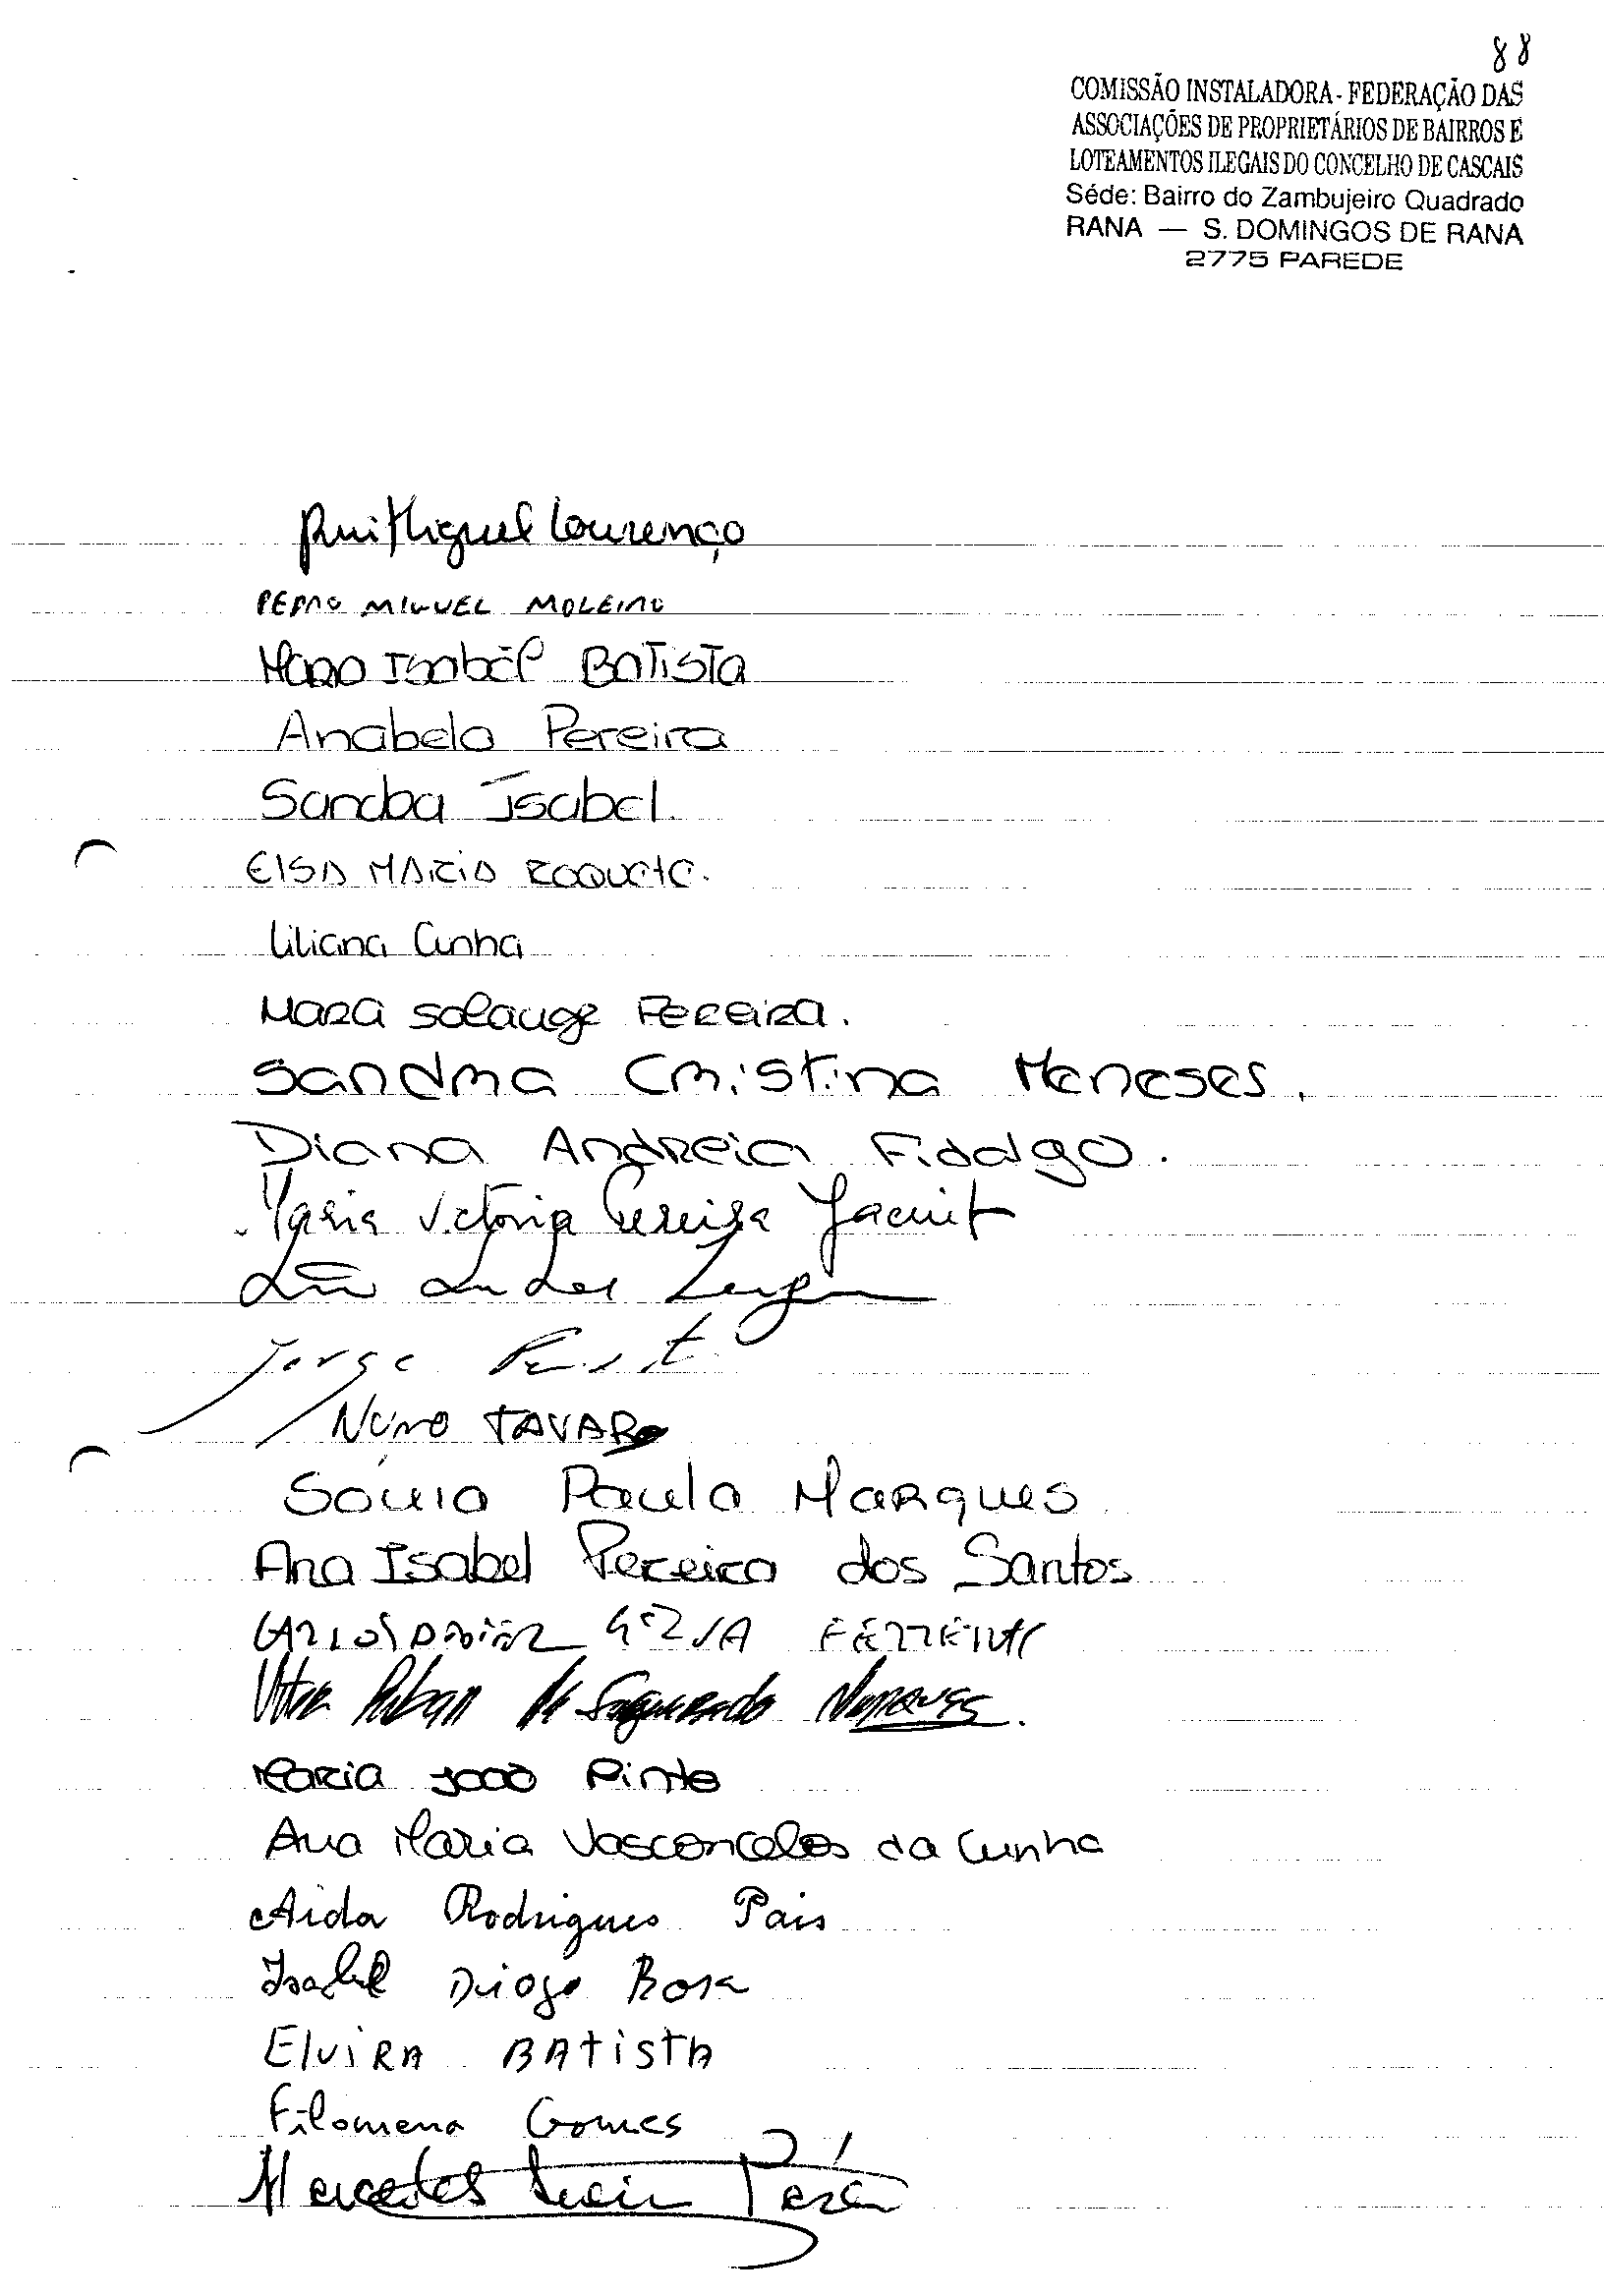 88
COMISSÃO INSTALADORA - FEDERAÇÃO DAS
ASSOCIAÇÕES DE PROPRIETÁRIOS DE BAIRROS E
LOTEAMENTOS ILEGAIS DO CONCELHO DE CASCAIS
Séde: Bairro do Zambujeiro Quadrado
RANA — S. DOMINGOS DE RANA
2775 PAREDE
Rui Miguel Lourenço
PEDRO MIGUEL MOLEIRO
Isabel BATISTA
Anabela Pereira
Sandra Isabel.
ElSA MARIA ROQUETE.
Liliana Cunha
Mara Solange Pereira.
Sandra Cristina Meneses.
Diana Andreia Fidalgo.
Maria Victoria Pereira
Jorge
NUNO TAVARES
Sónia Paula Marques
Ana Isabel Pereira dos Santos
CARLOS
Vitor Ruben
Maria João Pinto
Ana Maria Vasconcelos da Cunha
Aida Rodrigues Pais
Isabel Diogo Rosa
ElviRA BAtistA
Filomena Gomes
Mercedes